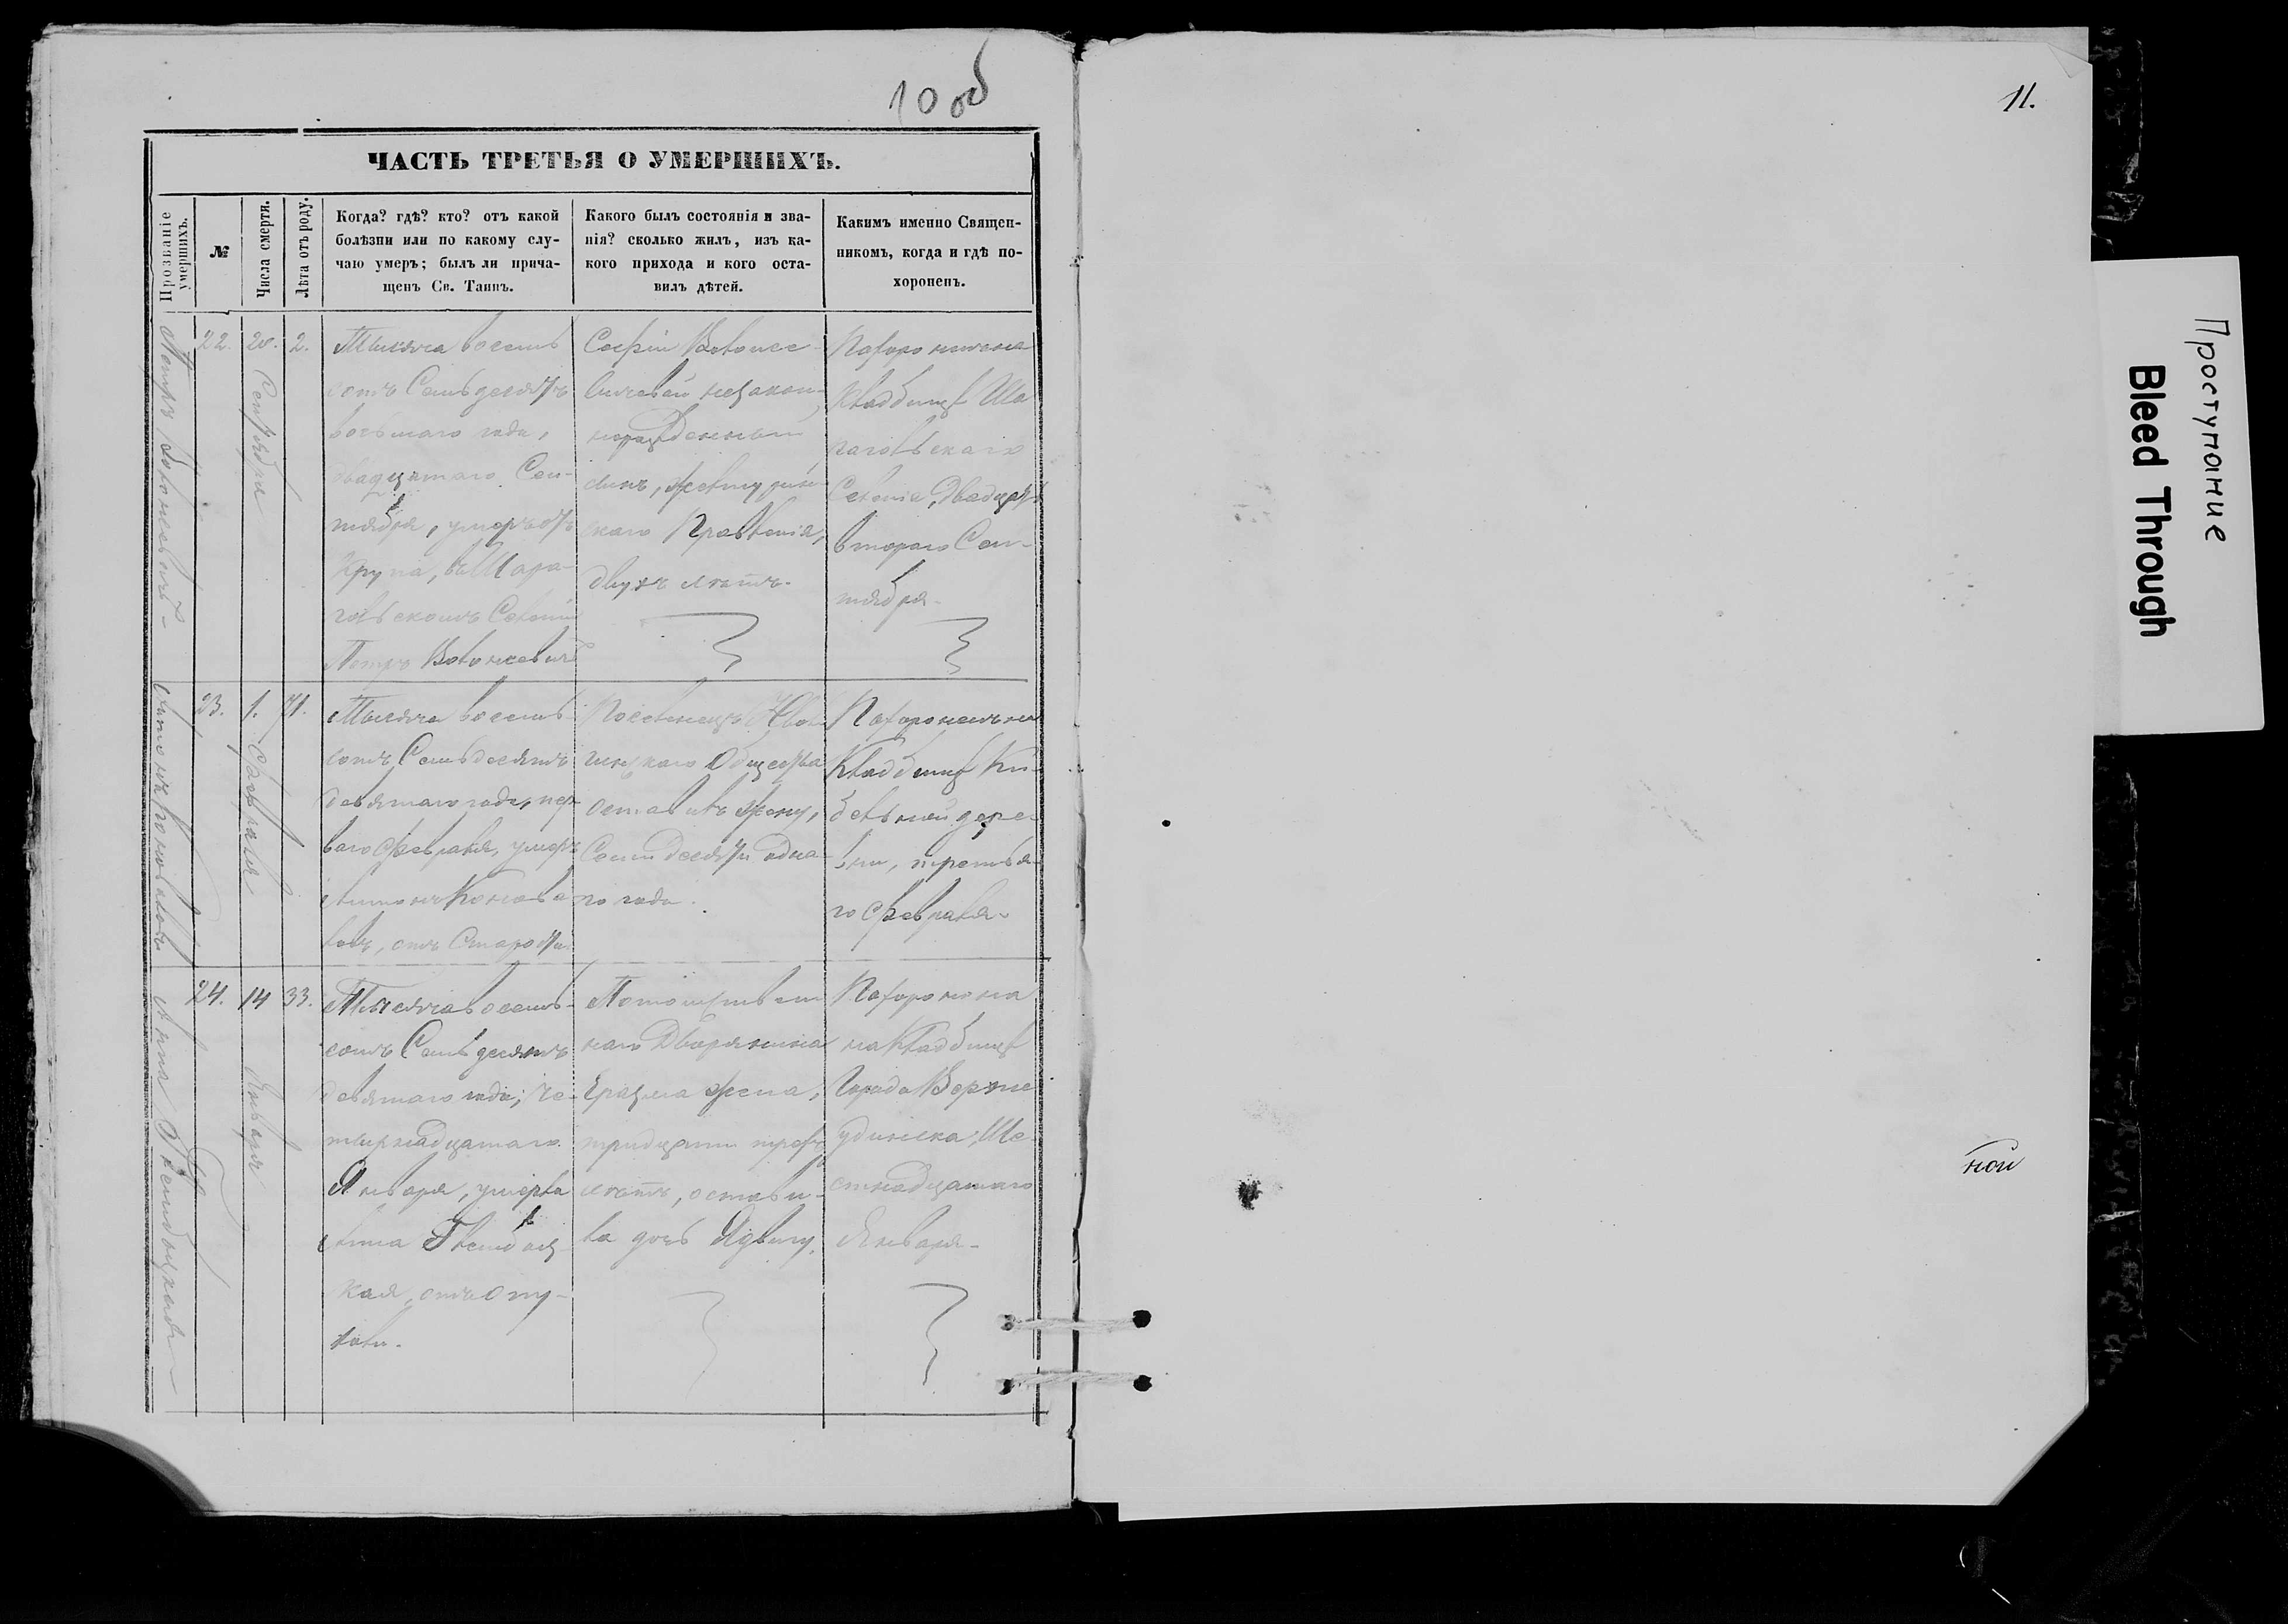 10 об
ЧАСТЬ ТРЕТЬЯ О УМЕРШИХЪ.
Прозваніе умершихъ.
№
Числа смерти.
Лѣта отъ роду.
Когда? гдѣ? кто? отъ какой
болѣзни или по какому слу-
чаю умеръ; былъ ли прича-
щенъ Св. Таинъ.
Какого былъ состоянія и зва-
нія? сколько жилъ, изъ ка-
кого прихода и кого оста-
вилъ дѣтей.
Какимъ именно Священ-
никомъ, когда и гдѣ по-
хороненъ.
Петръ
22.
20.
Сентября
2.
Тысяча восемь
сотъ Семьдесятъ
восьмаго года,
двадцатаго Сен-
тября, умеръ отъ
Крупа, въ
Петръ
Софіи
незакон-
норожденный
сынъ,
двухъ лѣтъ.
Похороненъ на
Кладбищѣ
Селенія, Двадцать
втораго Сен-
тября.
Антонъ Коновалов
23.
1.
Февраля
71.
Тысяча восемь-
сотъ Семьдесятъ
девятаго года, пер-
ваго Февраля, умеръ
Антонъ Конова-
ловъ, отъ Старости
Поселенецъ
Общества
оставивъ жену,
Семидесяти одно-
го года.
Похороненъ на
Кладбищѣ Ки-
бельной дере-
вни, третья-
го Февраля.
Анна
24.
14
Января
33.
Тысяча восемь-
сотъ Семьдесятъ
девятаго года, че-
тырнадцатаго
Января, умерла
Анна
кая, отъ опу-
холи.
Потомствен-
наго Дворянина
Еразма жена,
тридцати трехъ
лѣтъ, остави-
ла дочь Ядвигу.
Похоронена
на Кладбищѣ
Города Верхне
удинска, Ше-
стнадцатаго
Января.
11.
ной
Проступание
Bleed Through